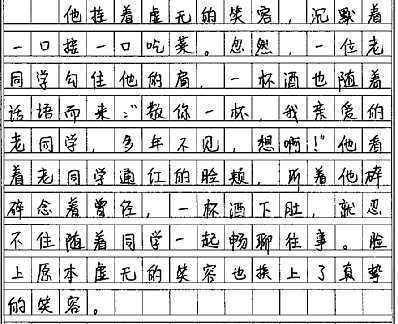 他挂着虚无的笑容，沉默着
一口接一口吃菜。忽然，一位老
同学勾住他的肩，一杯酒也随着
话语而来：“敬你一杯，我亲爱的
老同学，多年不见，想啊！”他看
着老同学通红的脸颊，听着他碎
碎念着曾经，一杯酒下肚，就忍
不住随着同学一起畅聊往事。脸
上原本虚无的笑容也换上了真挚
的笑容。